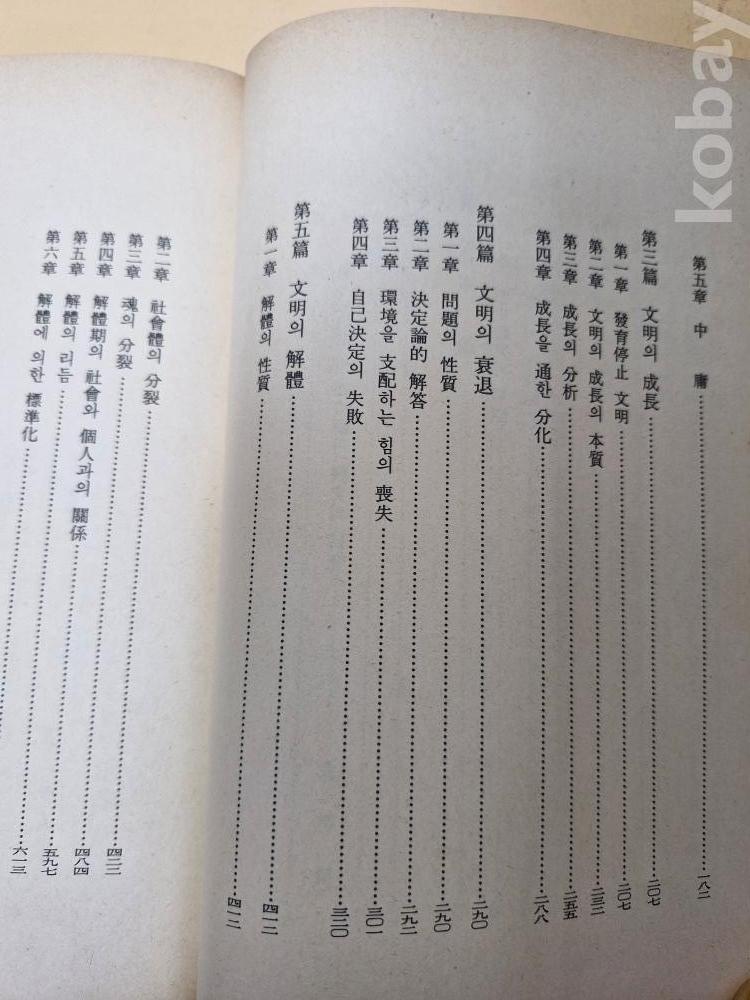 第五章 中 庸 ……… 一八二
第三篇 文明의 成長 ……… 二〇七
第一章 發育停止 文明 ……… 二〇七
第二章 文明의 成長의 本質 ……… 二三二
第三章 成長의 分析 ……… 二五五
第四章 成長을 通한 分化 ……… 二八八
第四篇 文明의 衰退 ……… 二九〇
第一章 問題의 性質 ……… 二九〇
第二章 決定論的 解答 ……… 二九二
第三章 環境을 支配하는 힘의 喪失 ……… 三〇一
第四章 自己決定의 失敗 ……… 三二〇
第五篇 文明의 解體 ……… 四一二
第一章 解體의 性質 ……… 四一二
第二章 社會體의 分裂 ……… 四二三
第三章 魂의 分裂 ……… 四八四
第四章 解體期의 社會와 個人과의 關係 ……… 五九七
第五章 解體의 리듬 ……… 六一三
第六章 解體에 의한 標準化 ………
kobay